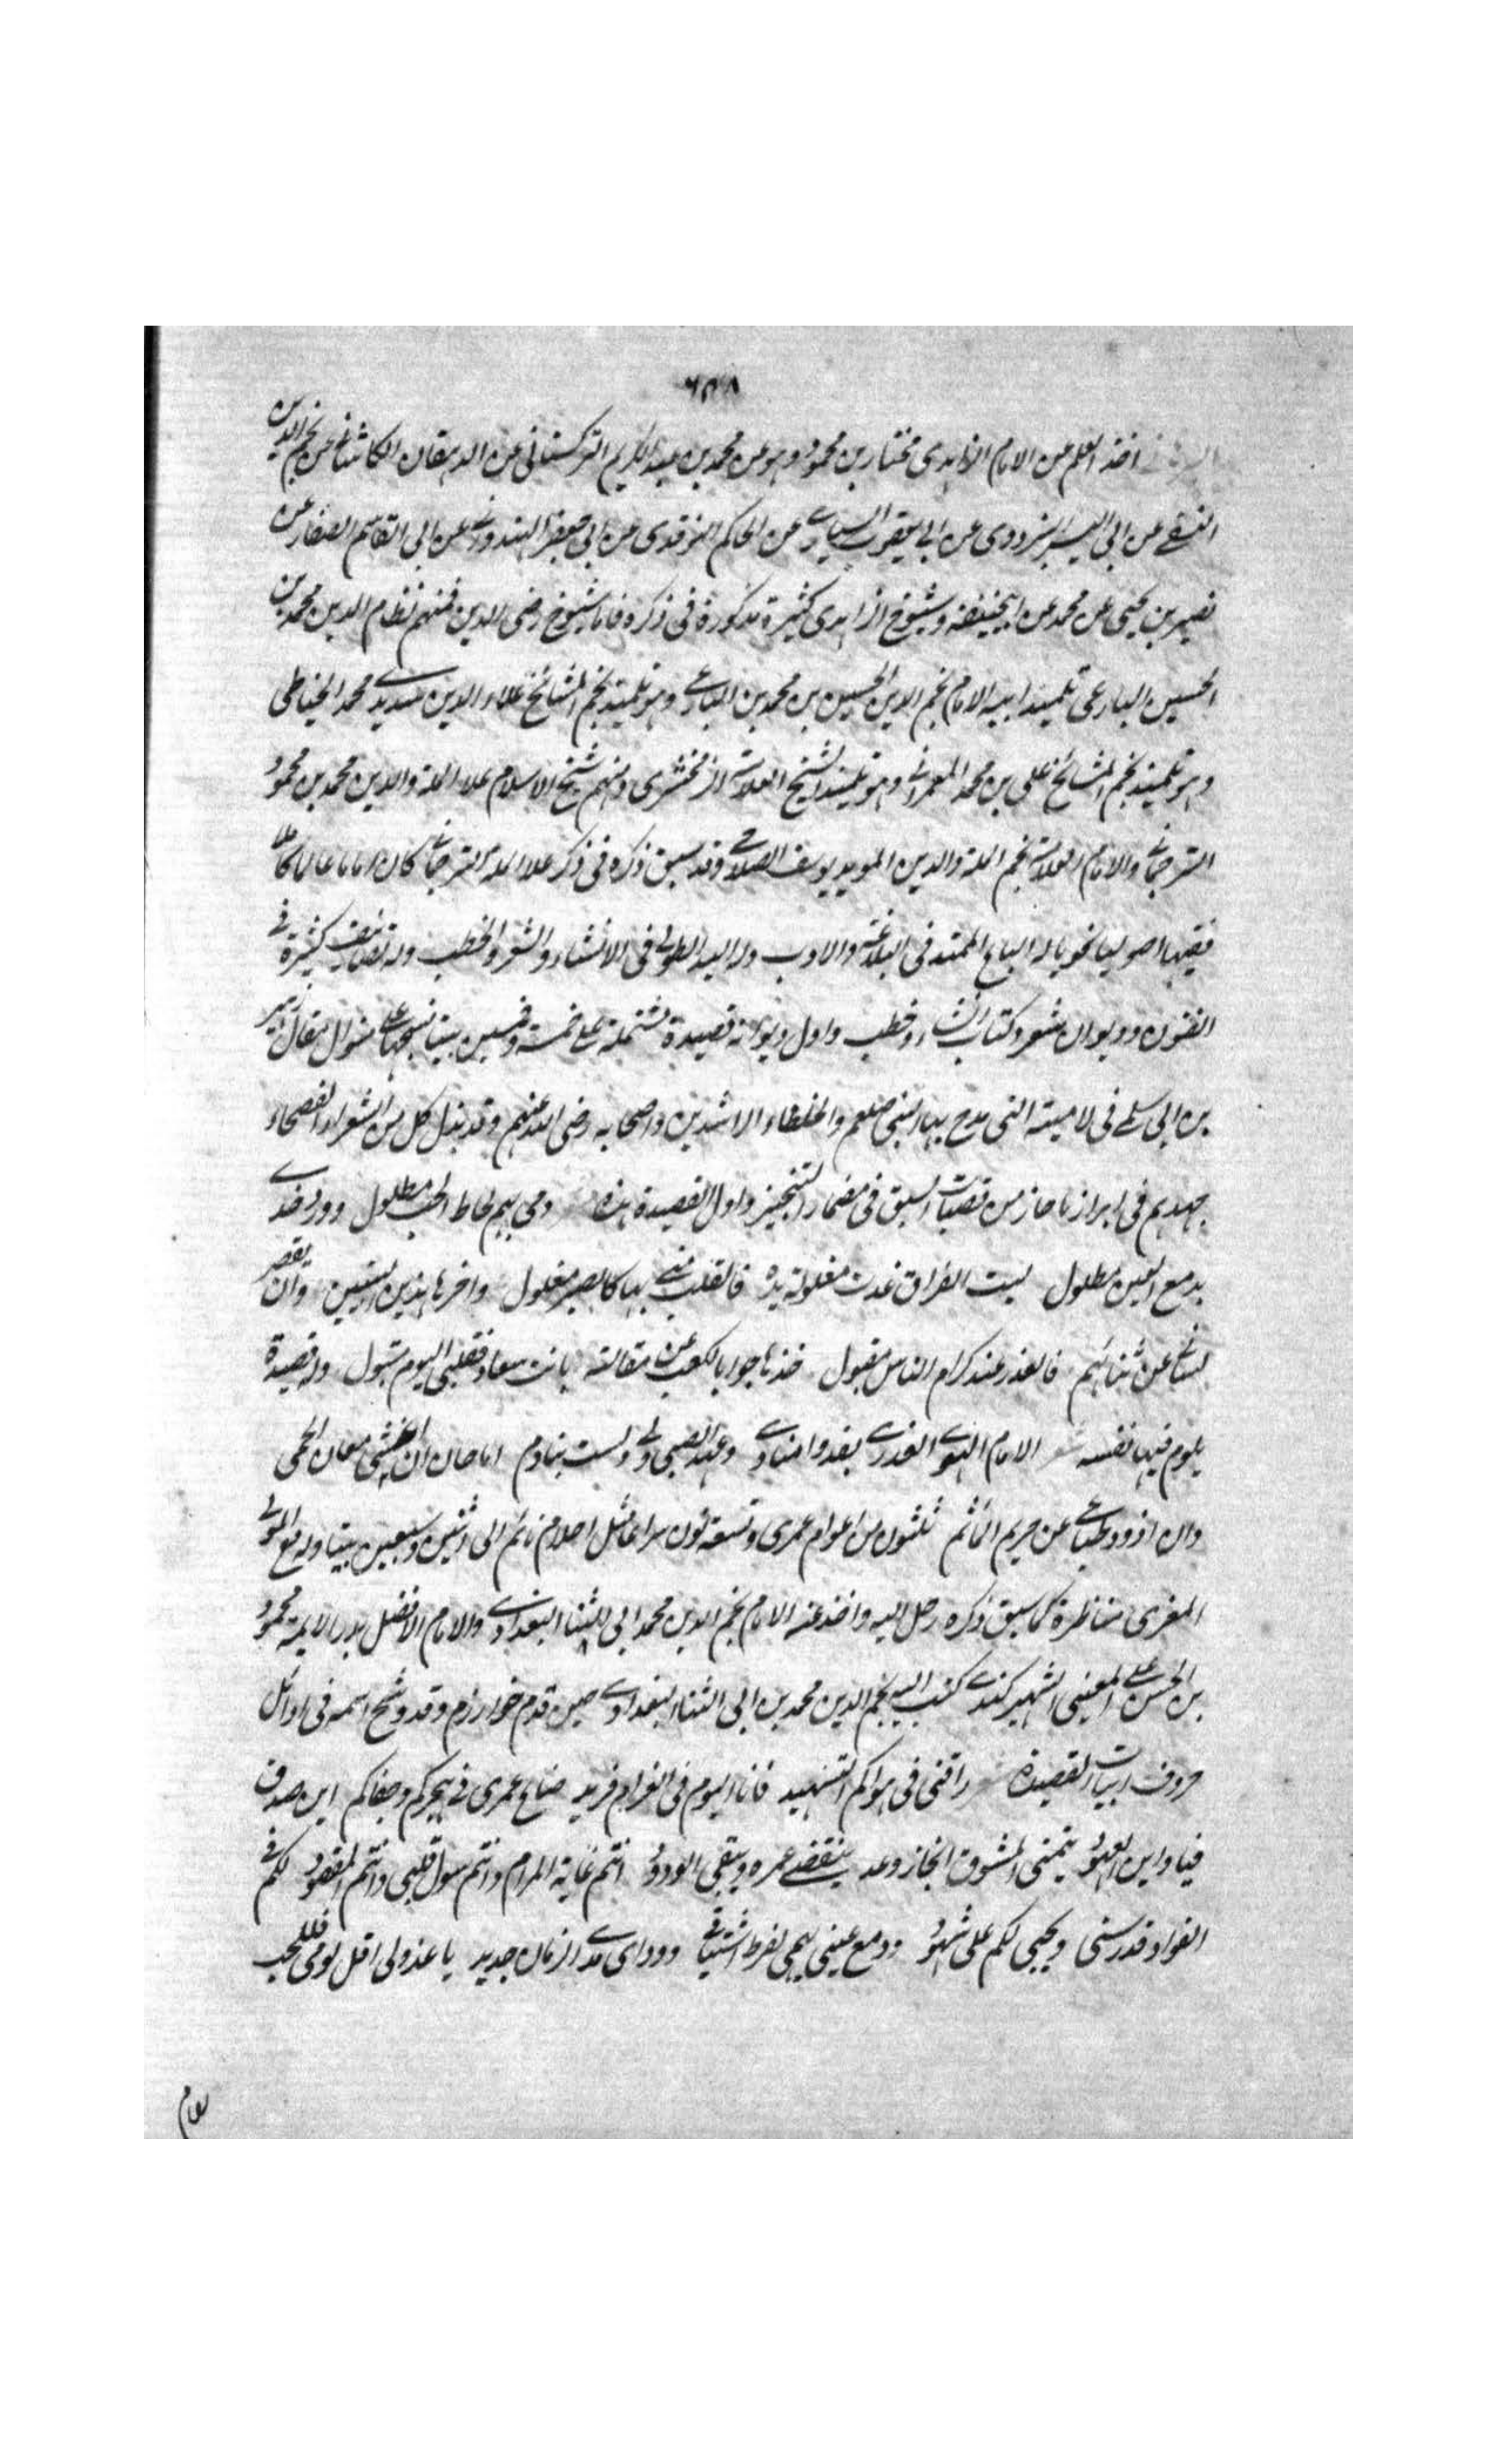 ٦٥٨
اخذ العلم من الامام الزاهدى مختار بن محمود وهو عن محمد بن عبد الكريم التركستانى عن الدهقان الكاشانى عن نجم الدين
النسفى عن ابى اليسر البزدوى عن ابى يعقوب السيارى عن الحاكم النوقدى عن ابى جعفر الهندوانى عن ابى القاسم الصفار عن
نصير بن يحيى عن محمد عن ابيحنيفة وشيوخ الزاهدى كثيرة مذكورة فى ذكره فاما شيوخ رضى الدين فمنهم نظام الدين محمد بن
الحسين البارعى تلميذ ابيه الامام نجم الدين الحسين بن محمد بن البارعى وهو تلميذ نجم المشائخ علاء الدين سديد محمد الخياطى
وهو تلميذ نجم المشائخ على بن محمد العمرانى وهو تلميذ الشيخ العلامة الزمخشرى ومنهم شيخ الاسلام علاء الملة والدين محمد بن محمود
الترجمانى والامام العلامة نجم الملة والدين المويد يوسف الصلاحى وقد سبق ذكره فى ذكر علاء الملة الترجمانى كان اماما عالما كاملا
فقيها اصوليا نحويا له الباع الممتد فى البلاغة والادب وله اليد الطولى فى الانشاء والشعر والخطب وله تصانيف كثيرة فى
الفنون وديوان شعر وكتاب انشاء وخطب واول ديوانه قصيدة مشتملة على خمسة وخمسين بيتا نسجها على منوال مقال زهير
بن ابى سلمى فى لاميته التى مدح بها النبى صلعم والخلفاء الراشدين واصحابه رضى الله عنهم وقد بذل كل من الشعراء الفصحاء
جهدهم فى ابراز ما حاز من قصبات السبق فى مضمار التنجيز واول القصيدة هذه دمى بيم لحاط الحب مطلول وورد خدى
بدمع العين مطلول ليت الفراق غدت مغلولة يده فالقلب منى بها كالصبر مغلول واخرها هذين البيتين وان يقصر
لسانى عن ثنائهم فالعذر عند كرام الناس مقبول خذها جوابا لكعب عن مقالته بانت سعاد فقلبى اليوم متبول وله قصيدة
يلوم فيها نفسه الام الهوى العذرى بغدوا منادى وعهد الصبى ولى ولست بنادم اما حان ان اخشى معان الحمى
وان اذود طباعى عن حريم المآثم ثلثون من اعوام عمرى وتسعة تولون سراعا مثل احلام نائم الى اثنين وسبعين بيتا وله مع المولى
المغرى مناظرة كما سبق ذكره رحل اليه واخذ عنه الامام نجم الدين محمد ابى الثنا البغدادى والامام الافضل بدر الايمة محمود
بن الحسن على المعينى الشهير كندى كتب اليه نجم الدين محمد بن ابى الثنا البغدادى حين قدم خوارزم وقد وشح اسمه فى اوائل
حروف ابيات القصيدة راقنى فى هواكم التسهيد فانا اليوم فى الغرام فريد ضاع عمرى فى هجركم وجفاكم اين صدق
فيا واين العهود يتمنى المشوق انجاز وعد ينقضى عمره ويبقى الودود انتم غاية المرام وانتم سول قلبى وانتم المقصود لكم فى
الفواد قدر سنى ويحيى لكم على شهود ودمع عينى يهمى لفرط اشتياقى وودادى مدى الزمان جديد يا عذولى اقل لومى فللحب